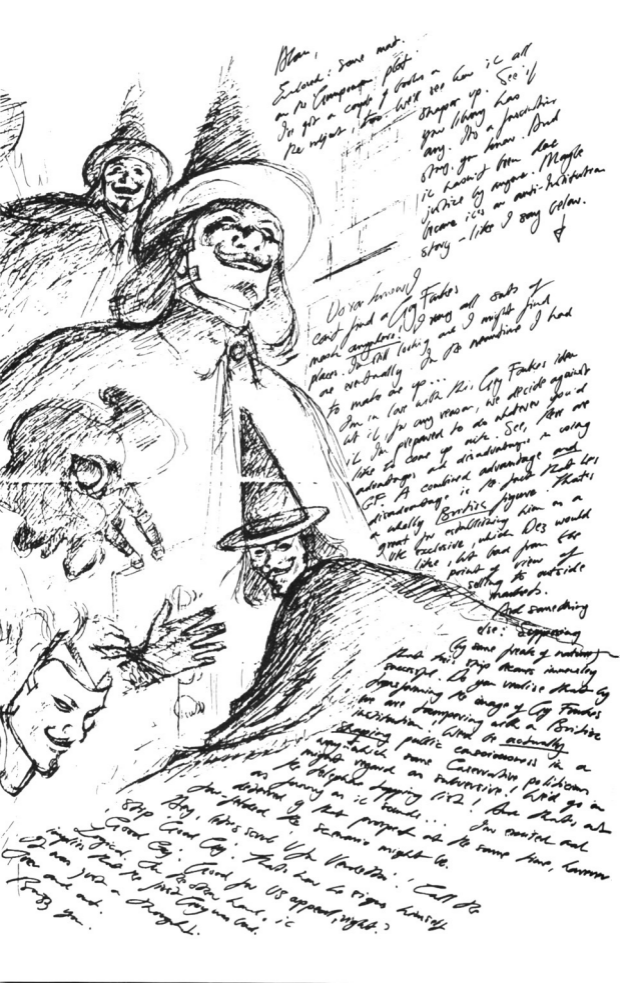 Alan,
Enclosed: some mat.
on the Gunpowder plot.
I've got a couple of books on
the subject, too. We'll see how it all
shapes up. See if
your library has
any. It's a fascinating
story, you know. And
it hasn't been done
justice by anyone. Maybe
because it's an anti-Institution
story - like I say below.
Do you know I
can't find a Guy Fawkes
mask anywhere. I rang all sorts of
places. I'm still looking and I might find
one eventually. In the meantime I had
to make one up...
I'm in love with this Guy Fawkes idea
but if, for any reason, we decide against
it I'm prepared to do whatever you'd
like to come up with. See, there are
advantages and disadvantages in using
GF. A combined advantage and
disadvantage is the fact that he's
a wholly British figure. That's
great for establishing him as a
UK exclusive, which Dez would
like, but bad from the
point of view of
selling to outside
markets.
And something
else: supposing
by some freak of
that this strip became immensely
successful. Do you realise that by
transforming the image of Guy Fawkes
we are tampering with a British
institution? We'd be actually
shaping public consciousness in a
way which some Conservative politicians
might regard as subversive! We'd go on
the telephone tapping list! And that's not
as funny as it sounds... I'm excited and
by that prospect at the same time, however
the scenario might be.
Hey, let's scrub 'V for Vendetta'! Call the
strip Good Guy. That's how he signs himself
Good Guy. Good for US appeal, right?
Logical. On the other hand, it
implies that the first Guy was bad.
It was just a thought.
Over and out.
Buzz you.